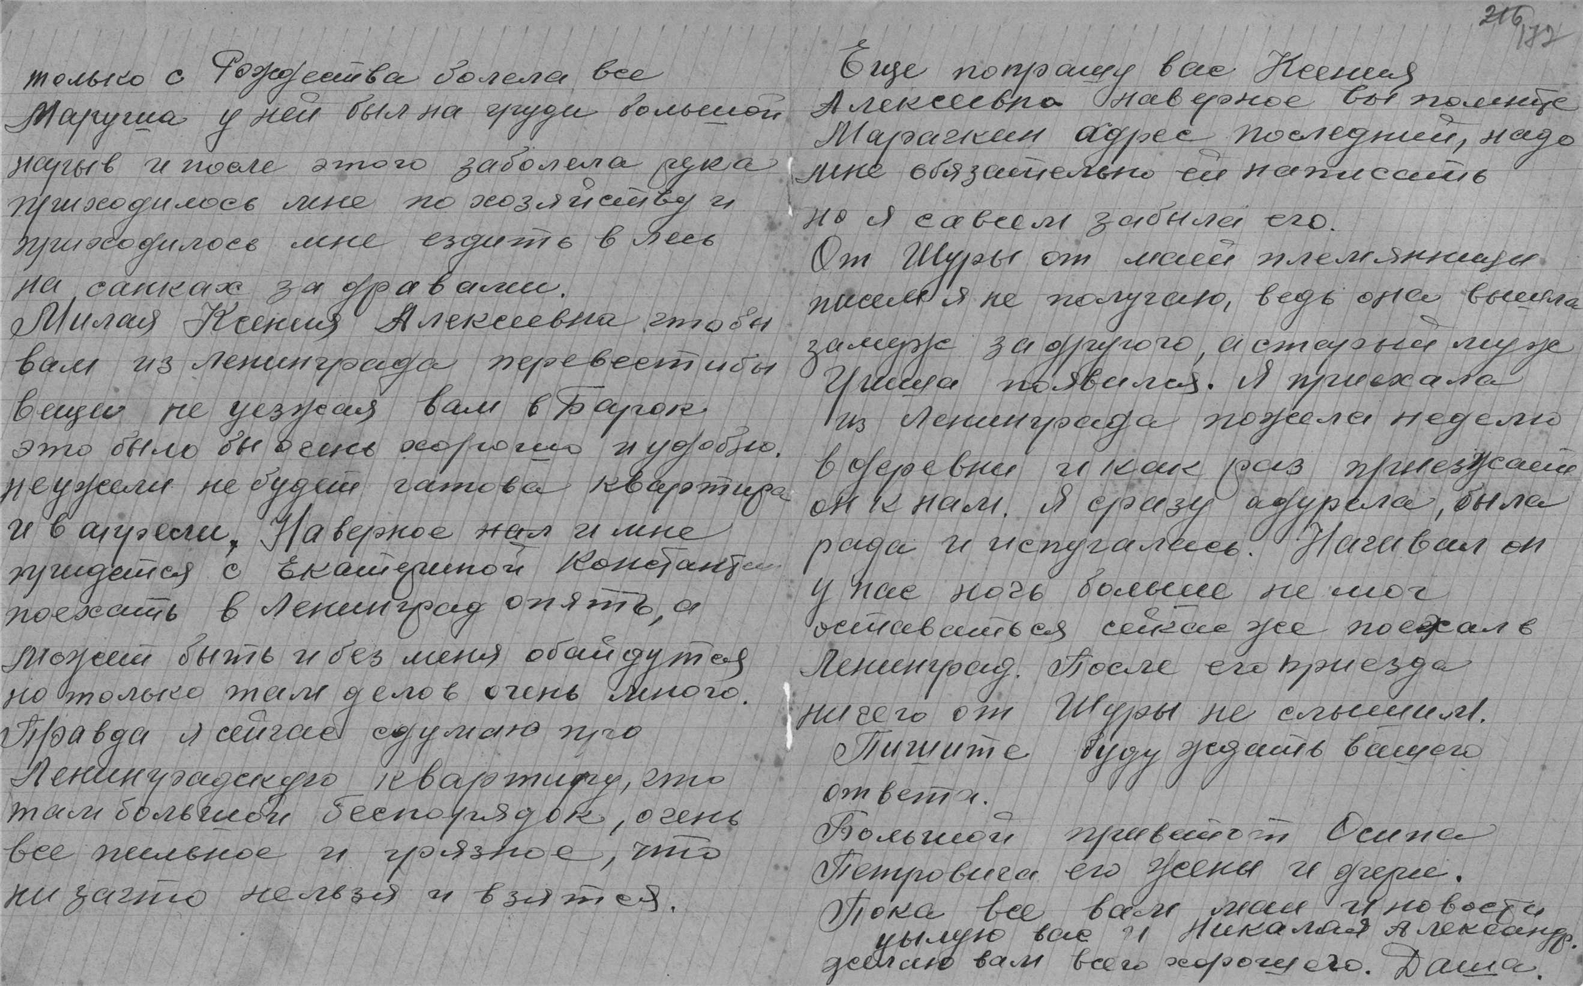 только с Рождества болела все
Маруша у ней был на груди большой
нарыв и после этого заболела рука
приходилось мне по хозяйству и
приходилось мне ездить в лесь
на санках за дравами.
Милая Ксения Алексеевна чтобы
вам из Ленинграда перевести бы
вещи не уезжая вам в Барок
это было бы очень хорошо и удобно.
неужели не будет гатова квартира
и в апрели, Наверное нам и мне
придется с Екатериной Константин
поехать в Ленинград опять, а
может быть и без меня обайдутся
но только там делов очень много.
Правда я сейчас сдумаю про
Ленинградскую квартиру, что
там большой беспорядок, очень
все пыльное и грязное, что
ни зачто нельзя и взятся.
216
172
Еще попрашу вас Ксения
Алексеевна наверное вы помните
Марачкин адрес последний, надо
мне обязательно ей написать
но я савсем забыла его.
От Шуры от маей племянницы
писем я не получаю, ведь она вышла
замуж за другого, а старый муж
Гриша появился. Я приехала
из Ленинграда пожела неделю
в деревни и как раз приезжает
он к нам. Я сразу адурела, была
рада и испугалась. Начивал он
у нас ночь больше не мог
оставаться сейчас же поехал в
Ленинград. После его приезда
ничего от Шуры не слышим.
Пишите буду ждать вашего
ответа.
Большой привет от Осипа
Петровича его жены и дчери.
Пока все вам маи и новости
цылую вас и Никалая Александр.
желаю вам всего хорошего. Даша.